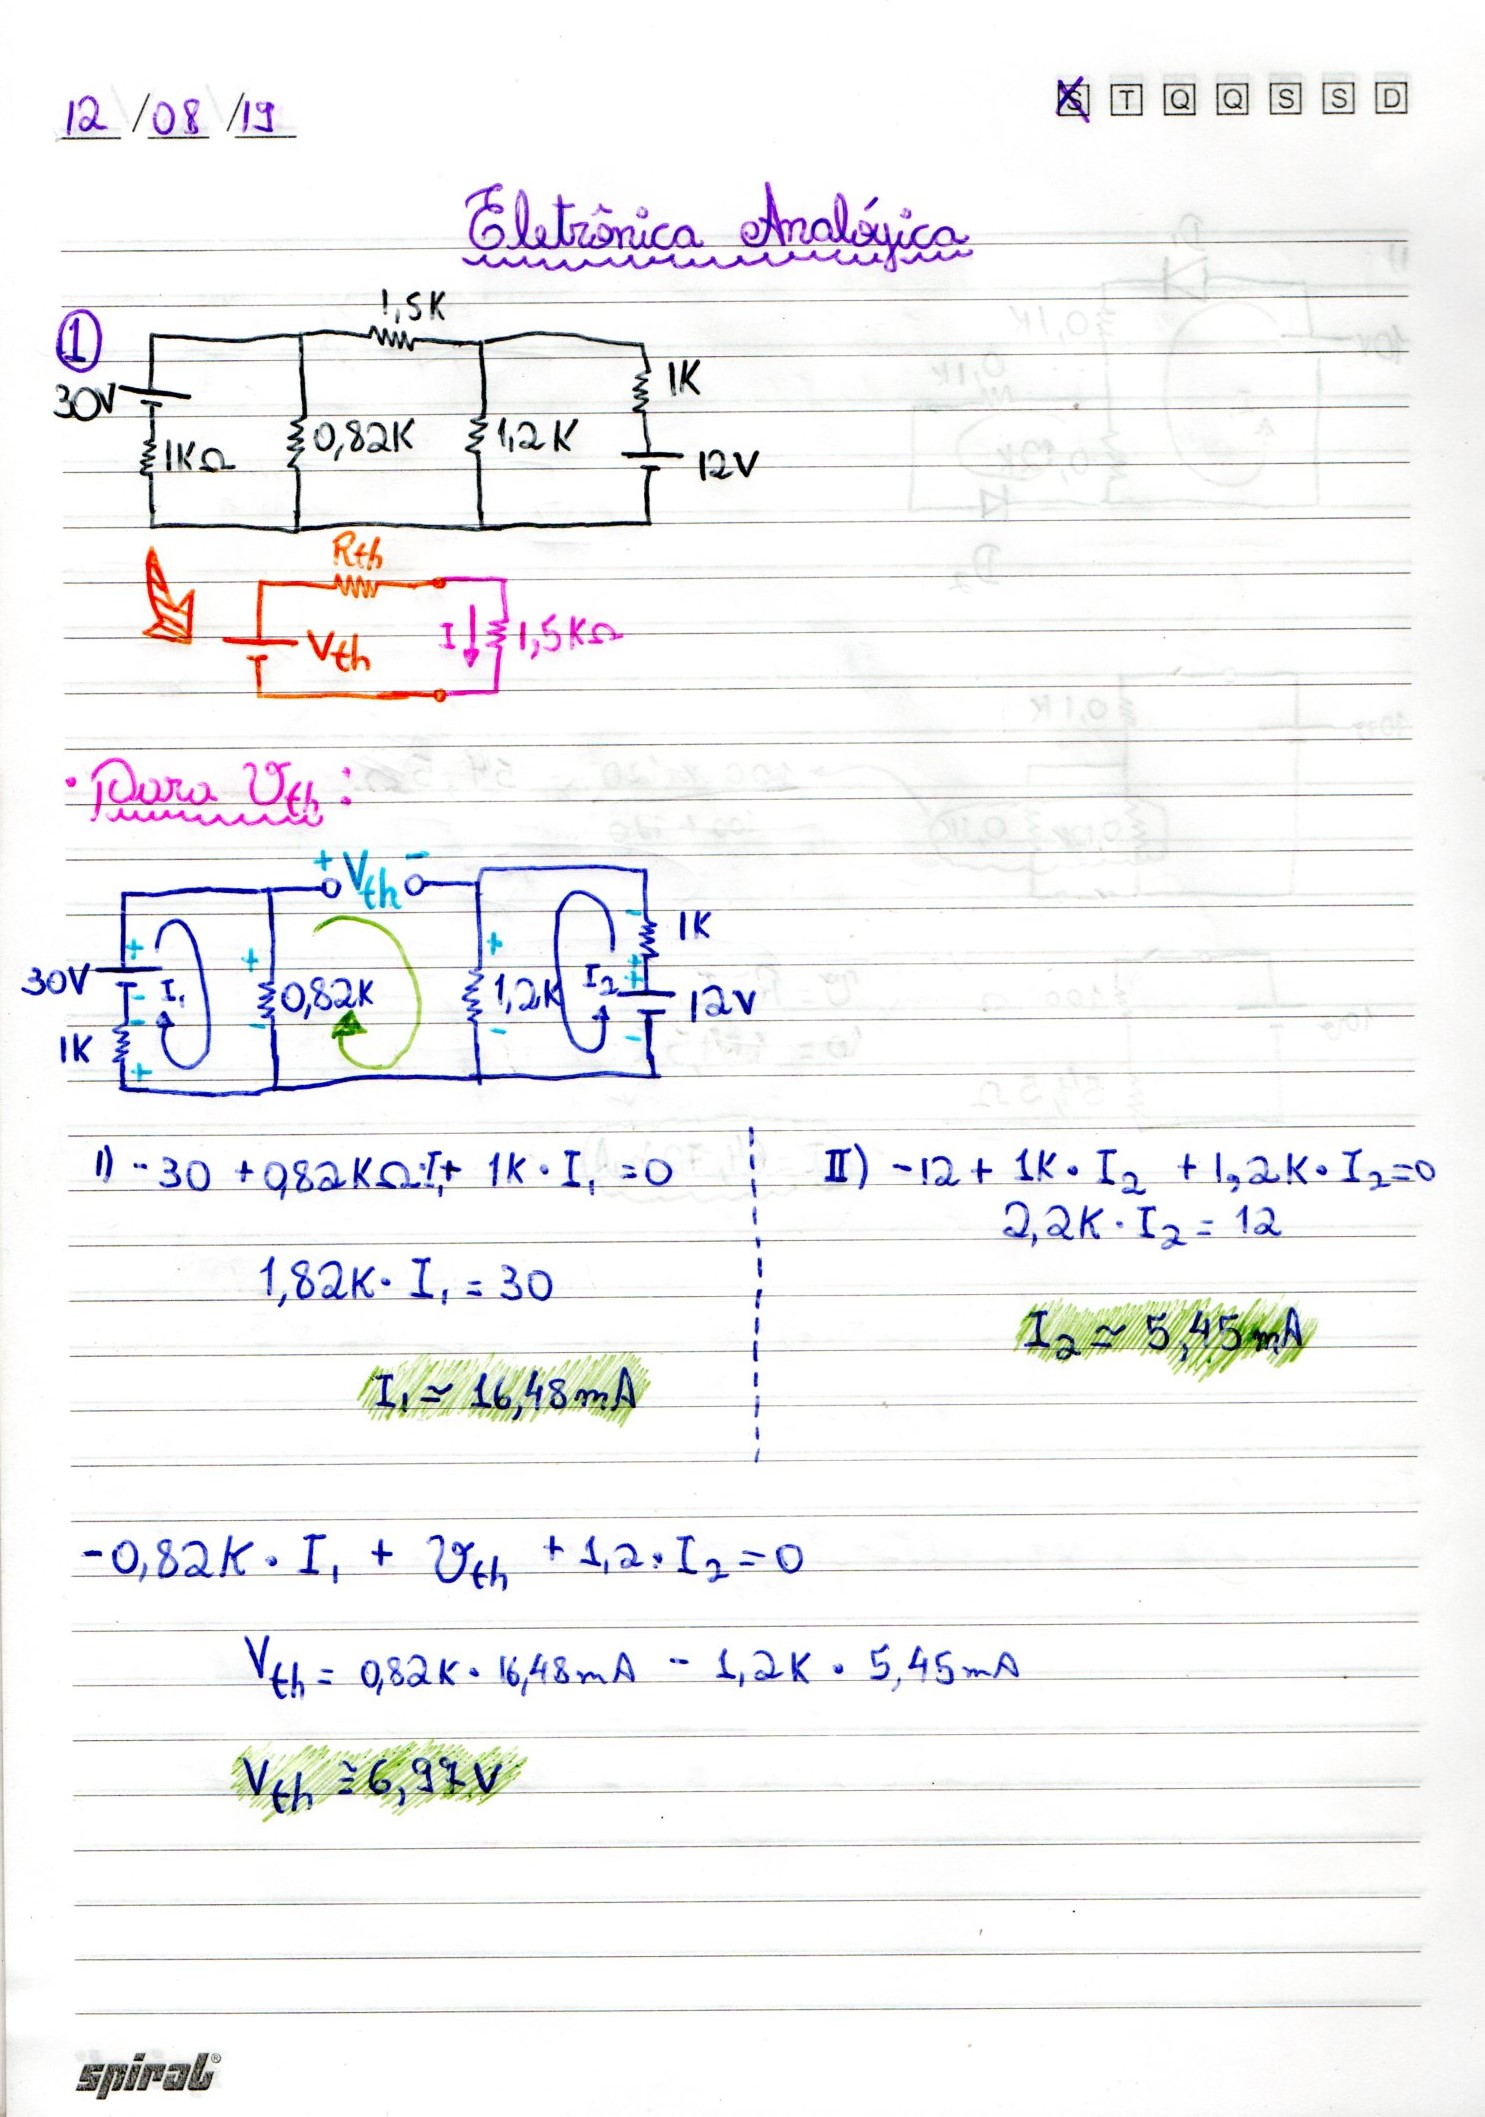 12/08/19
S T Q Q S S D
Eletrônica Analógica
1
1,5K
30V
1KΩ
0,82K
1,2K
1K
12V
Rth
Vth
I
1,5KΩ
• Para Vth:
+ Vth -
30V
1K
I₁
0,82K
1,2K
I₂
1K
12V
I) -30 + 0,82KΩ·I₁ + 1K · I₁ = 0
1,82K · I₁ = 30
I₁ ≃ 16,48mA
II) -12 + 1K · I₂ + 1,2K · I₂ = 0
2,2K · I₂ = 12
I₂ ≃ 5,45mA
-0,82K · I₁ + Vth + 1,2 · I₂ = 0
Vth = 0,82K · 16,48mA - 1,2K · 5,45mA
Vth ≅ 6,97V
spiral®